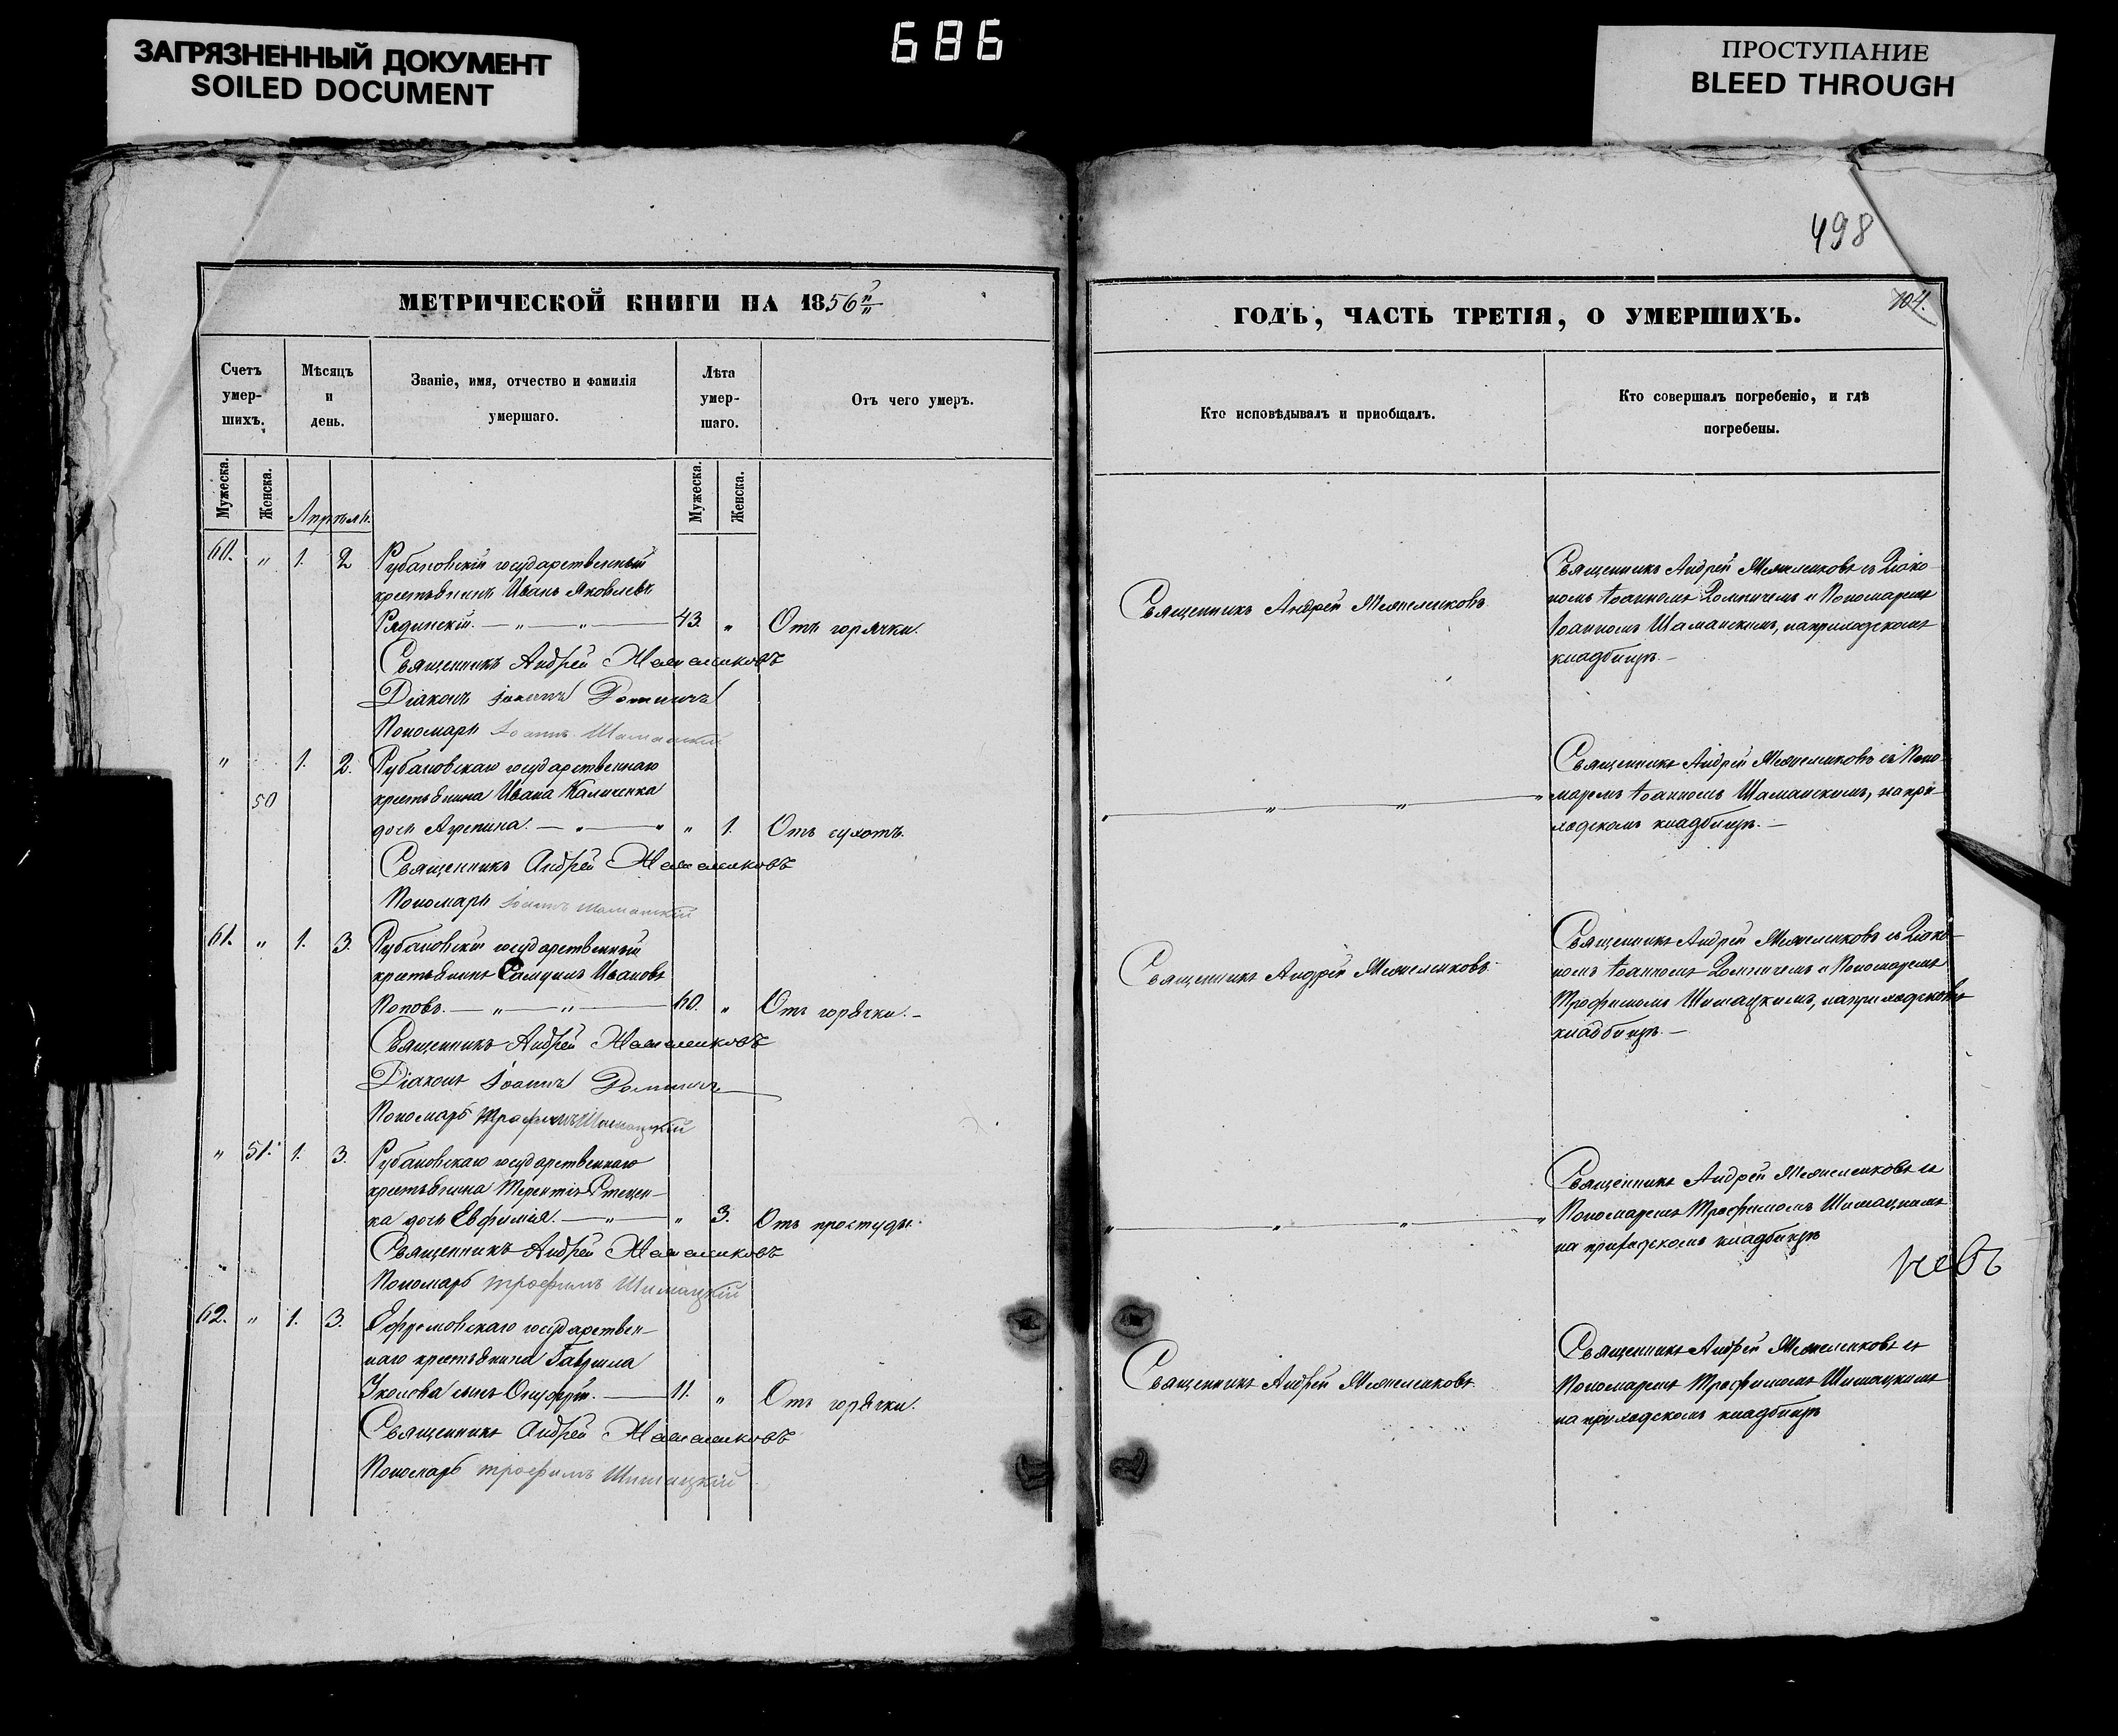 ЗАГРЯЗНЕННЫЙ ДОКУМЕНТ
SOILED DOCUMENT
686
ПРОСТУПАНИЕ
BLEED THROUGH
498
МЕТРИЧЕСКОЙ КНИГИ НА 1856
Счетъ умер-шихъ.
Мѣсяцъ и день.
Званіе, имя, отчество и фамилія умершаго.
Лѣта умер-шаго.
Отъ чего умеръ.
Мужеска.
Женска.
Мужеска.
Женска.
Апрѣль.
60. " 1. 2 Рубановскій государственный
крестьянинъ Иванъ Яковлевъ
43. " Отъ горячки.
Священникъ Андрей
Діаконъ Іоаннъ
Пономарь Іоаннъ Шаманскій
" 50 1. 2. Рубановскаго государственнаго
крестьянина Ивана Каличенка
дочь Агрепина. " 1. Отъ сухотъ.
Священникъ Андрей
Пономарь Іоаннъ Шаманскій
61. " 1. 3. Рубановскій государственный
крестьянинъ Самуилъ Ивановъ
Поповъ. 60. " Отъ горячки.
Священникъ Андрей
Діаконъ Іоаннъ
Пономарь Трофимъ Шимацкій
" 51. 1. 3. Рубановскаго государственнаго
крестьянина Терентія Стецен-
ка дочь Евфимія. " 3. Отъ простуды.
Священникъ Андрей
Пономарь Трофимъ Шимацкій
62. " 1. 3. Ефремовскаго государствен-
наго крестьянина Гаврила
сынъ Онуфрій. 11. " Отъ горячки.
Священникъ Андрей
Пономарь Трофимъ Шимацкій
ГОДЪ, ЧАСТЬ ТРЕТІЯ, О УМЕРШИХЪ.
104.
Кто исповѣдывалъ и приобщалъ.
Кто совершалъ погребеніо, и гдѣ погребены.
Священникъ Андрей
Священникъ Андрей съ Діако-
номъ Іоанномъ и Пономаремъ
Іоанномъ Шаманскимъ, на приходскомъ
кладбищѣ.
Священникъ Андрей съ Поно-
маремъ Іоанномъ Шаманскимъ, на при-
ходскомъ кладбищѣ.
Священникъ Андрей
Священникъ Андрей съ Діако-
номъ Іоанномъ и Пономаремъ
Трофимомъ Шимацкимъ, на приходскомъ
кладбищѣ.
Священникъ Андрей съ
Пономаремъ Трофимомъ Шимацкимъ
на приходскомъ кладбищѣ
Священникъ Андрей
Священникъ Андрей съ
Пономаремъ Трофимомъ Шимацкимъ
на приходскомъ кладбищѣ